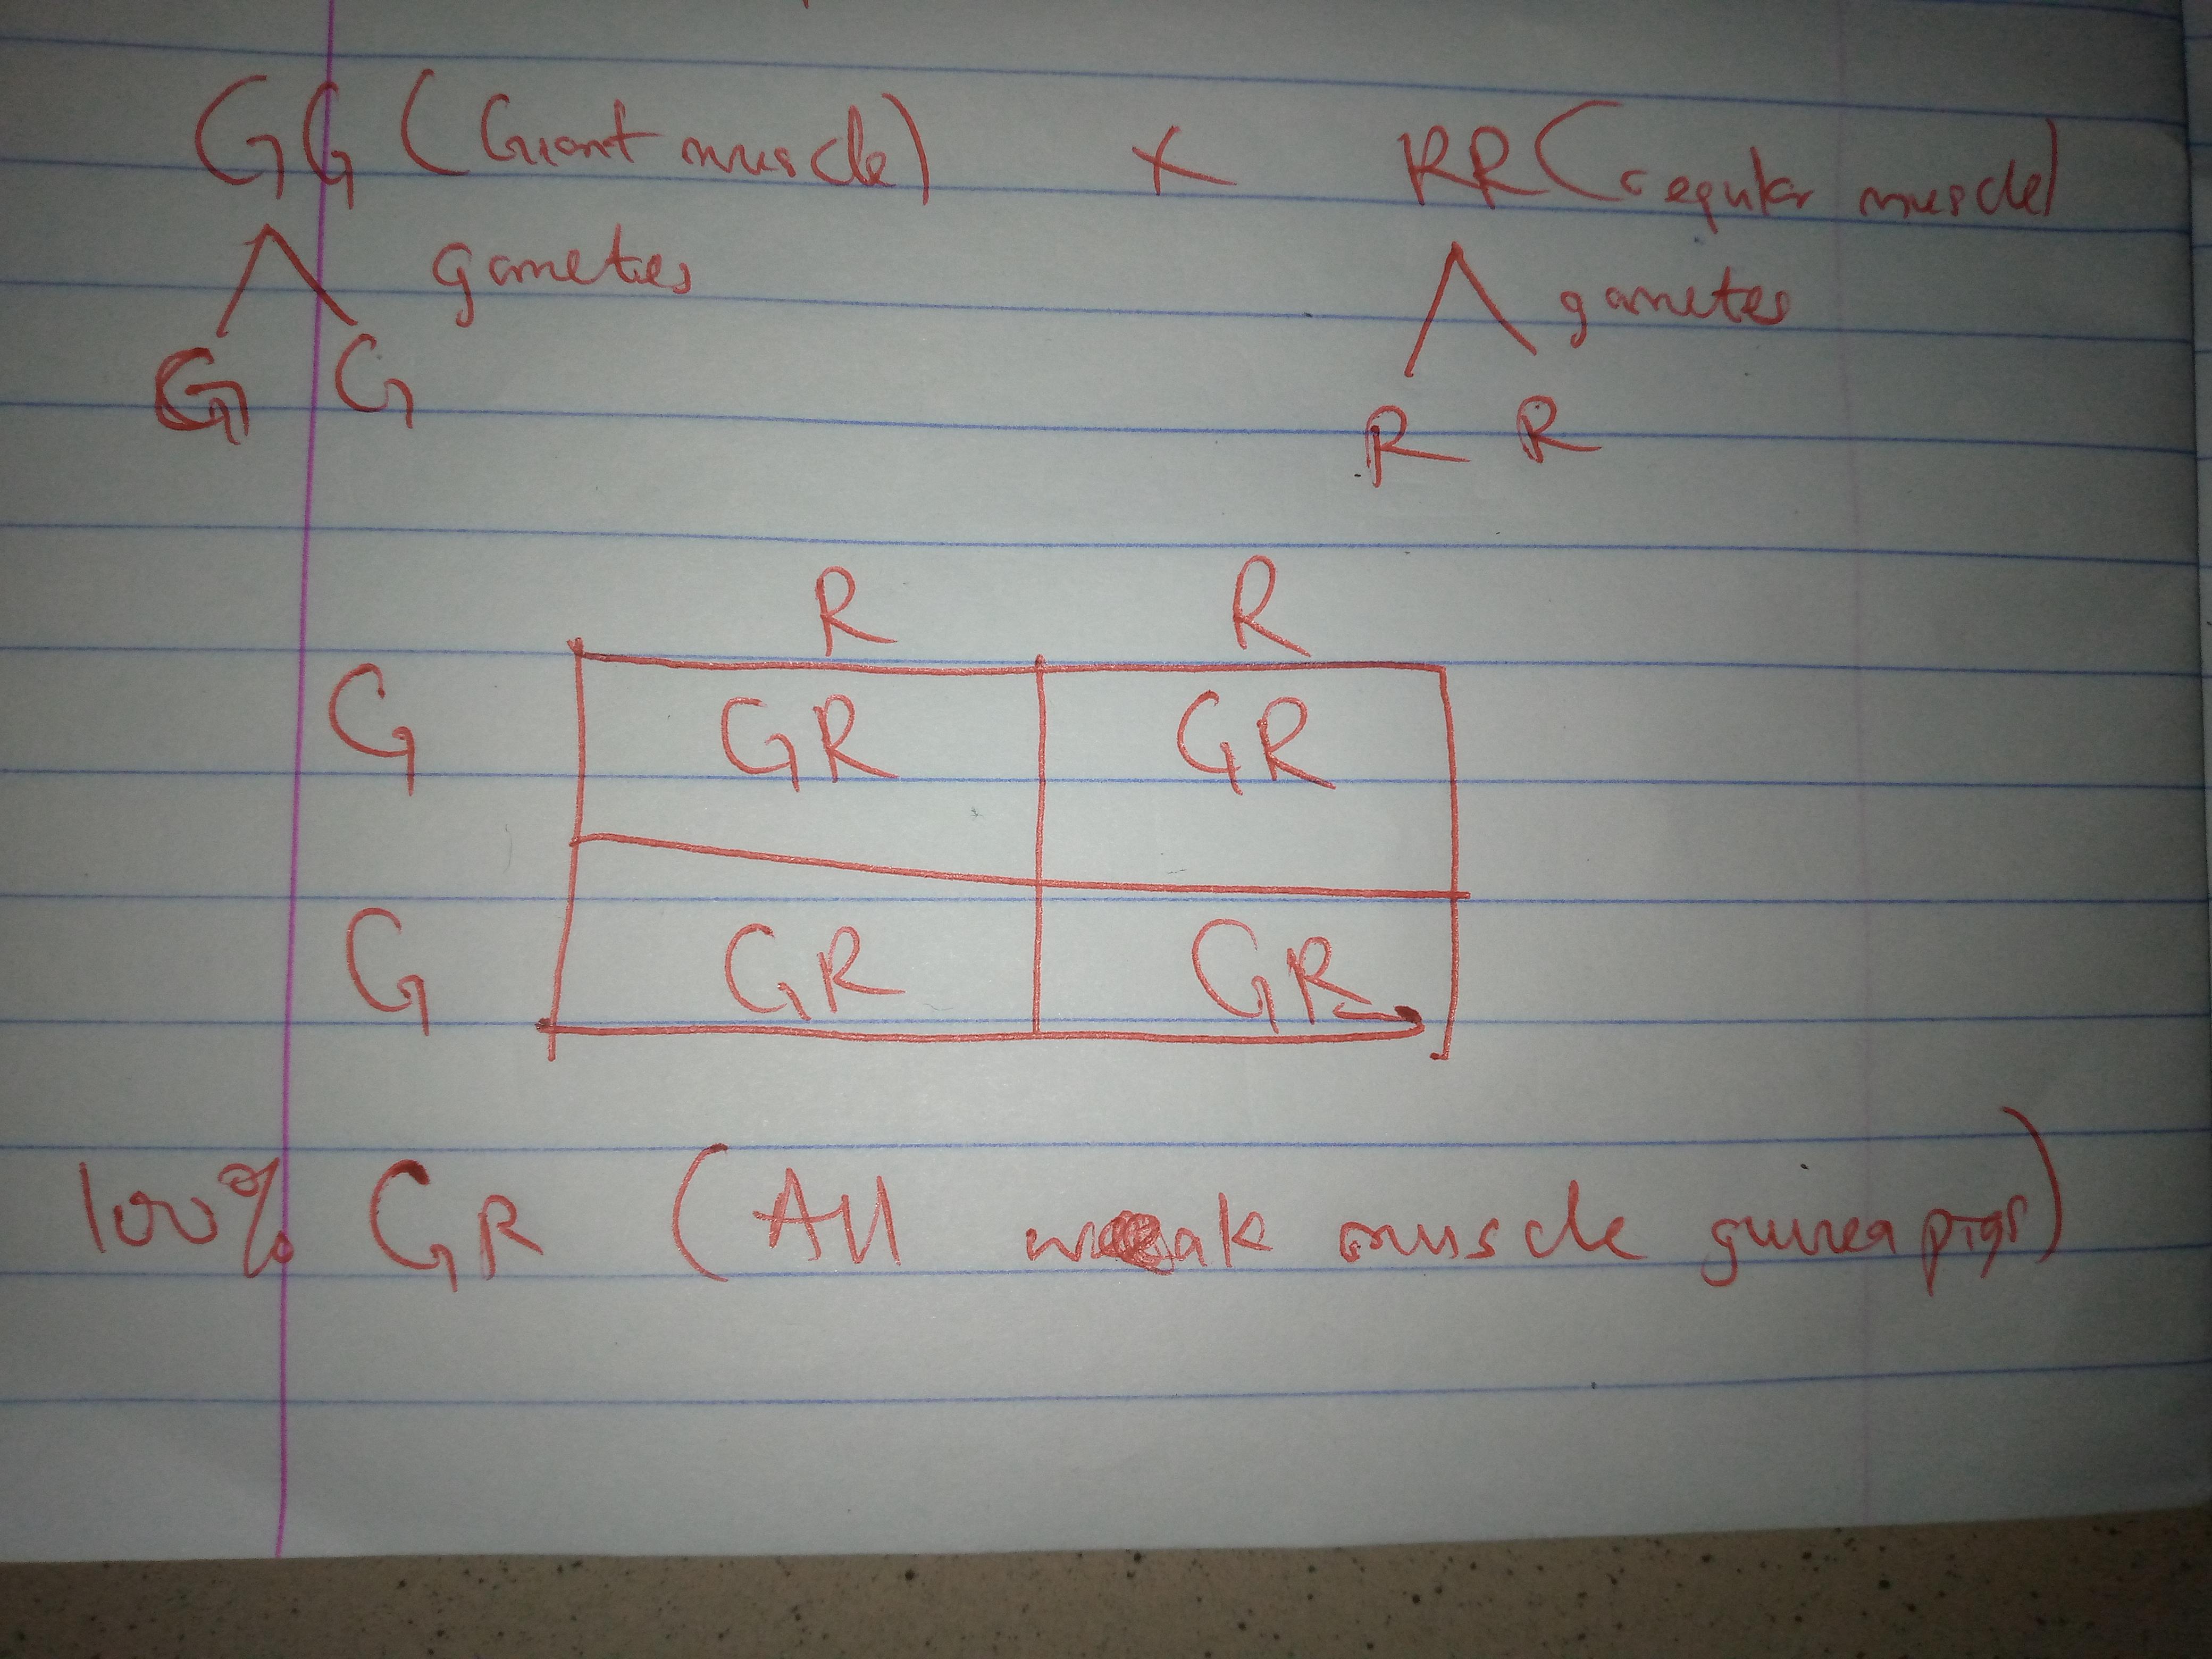 GG (Giant muscle) x RR (regular muscle)
gametes gametes
G G R R
R R
G GR GR
G GR GR
100% GR (All weak muscle guinea pigs)